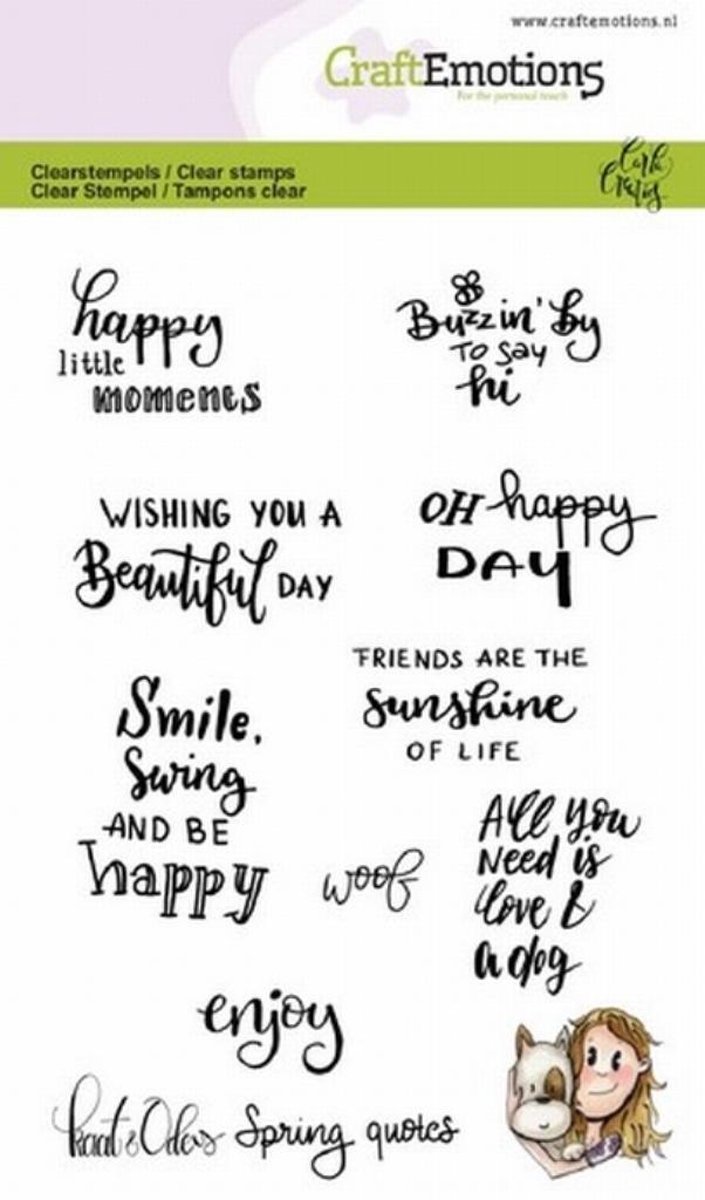 www.craftemotions.nl
CraftEmotions
For the personal touch
Clearstempels / Clear stamps
Clear Stempel / Tampons clear
happy
little
moments
Buzzin' by
TO SAY
hi
WISHING YOU A
Beautiful DAY
OH happy
DAY
FRIENDS ARE THE
sunshine
OF LIFE
Smile,
Swing
AND BE
happy
woof
All you
Need is
love &
a dog
enjoy
Spring quotes